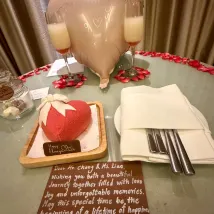 Dear Mr. Chong & Ms. Lian
Wishing you both a beautiful
journey together filled with love
Joy and unforgettable memories.
May this special time be the
beginning of a lifetime of happiness